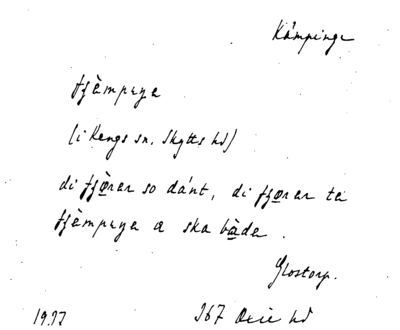 Kämpinge
fjämpeŋe
(i Rengs sn. Skytts hd)
di fjǫrar so dánt, di fjǫrar te
fjämpeŋe a ska båda.
Glostorp.
1937 267 Oxie hd